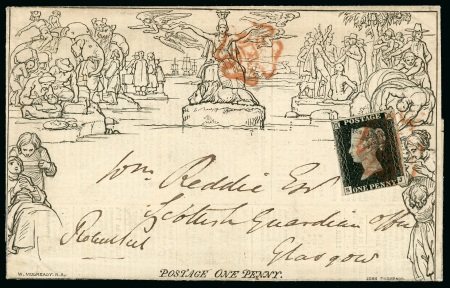 POSTAGE
ONE PENNY
Wm Reddie Esq
Scottish Guardian Office
Glasgow
W. MULREADY. R.A.
POSTAGE ONE PENNY.
JOHN THOMPSON